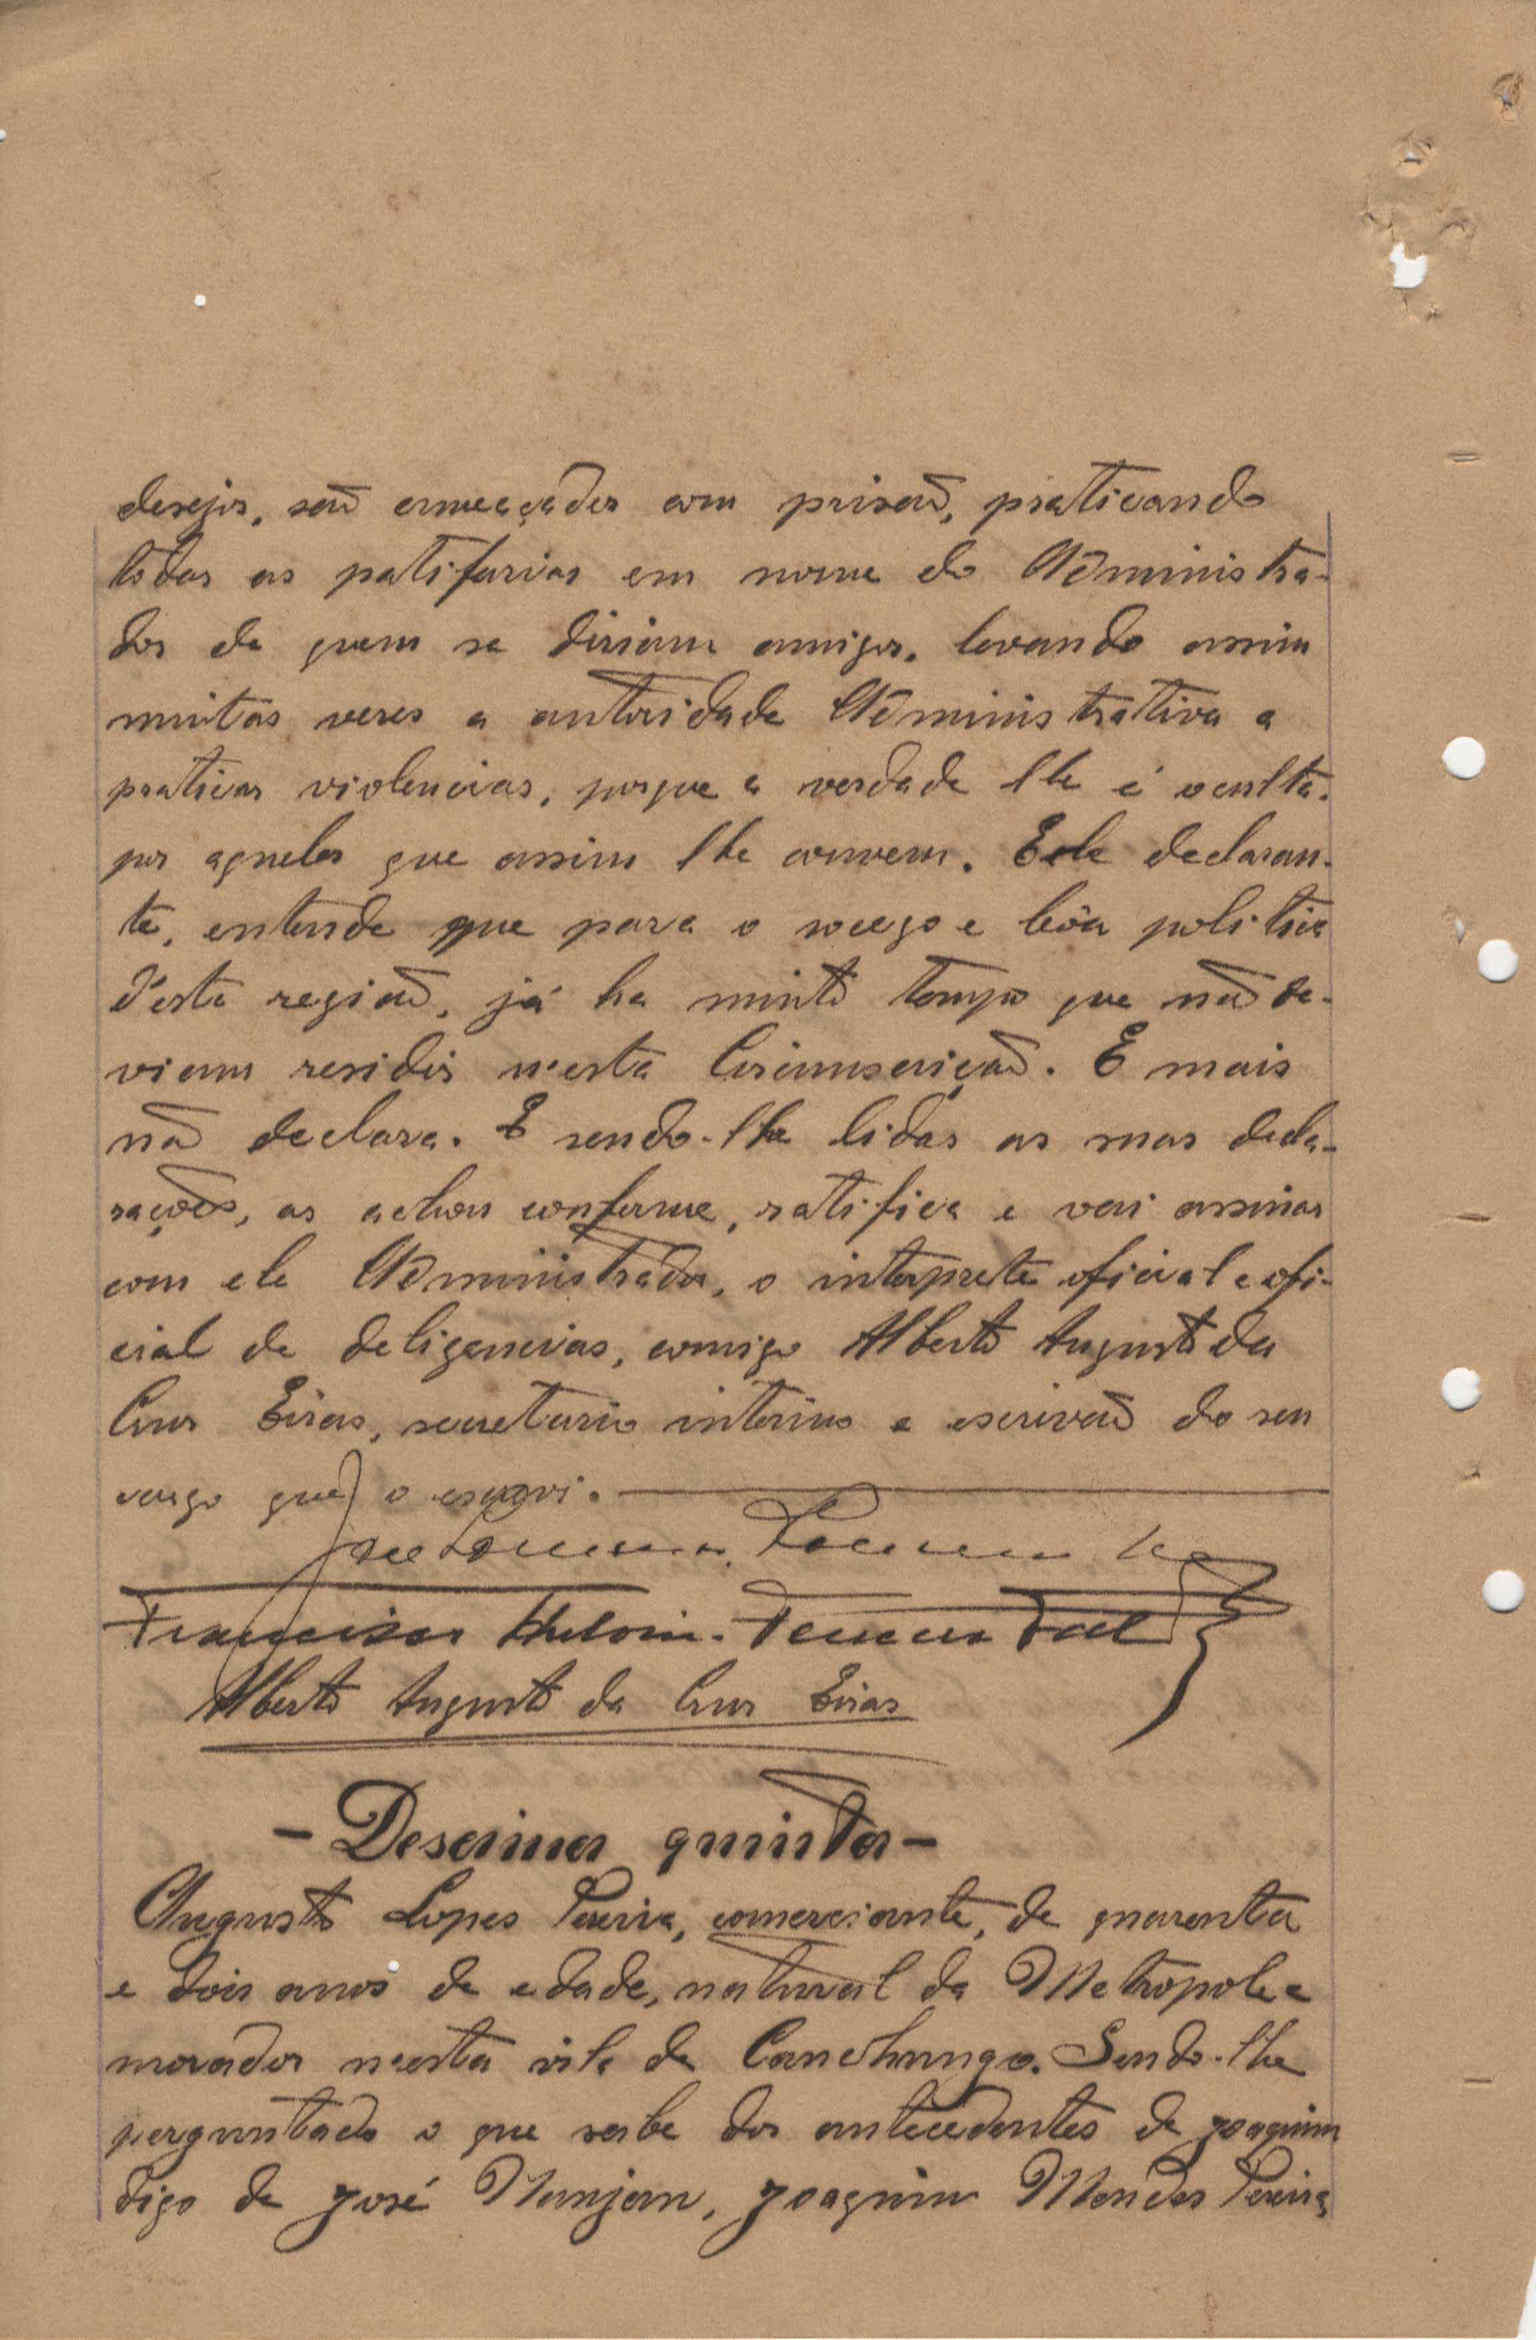 desejos, são ameaçados com prisão, praticando
todas as patifarias em nome do Administra-
dor de quem se diziam amigos, levando assim
muitas vezes a autoridade Administrativa a
praticar violencias, porque a verdade lhe é oculta
por aqueles que assim lhe convem. Ele declaran-
te, entende que para o socego e bôa politica
d'esta região, já ha muito tempo que não de-
viam residir n'esta Circumscrição. E mais
não declara. E sendo-lhe lidas as suas decla-
rações, as achou conforme, ratifica e vai assinar
com ele Administrador, o interprete oficial e ofi-
cial de deligencias, comigo Alberto Augusto da
Cruz Eiras, secretario interino e escrivão do seu
cargo que o escrevi.
Alberto Augusto da Cruz Eiras
- Desaima quinta -
Augusto Lopes Pereira, comerciante, de quarenta
e dois anos de edade, natural da Metropole e
morador nesta vila de Canchungo. Sendo-lhe
perguntado o que sabe dos antecedentes de Joaquim
digo de José Nanjan, Joaquim Mendes Pereira,